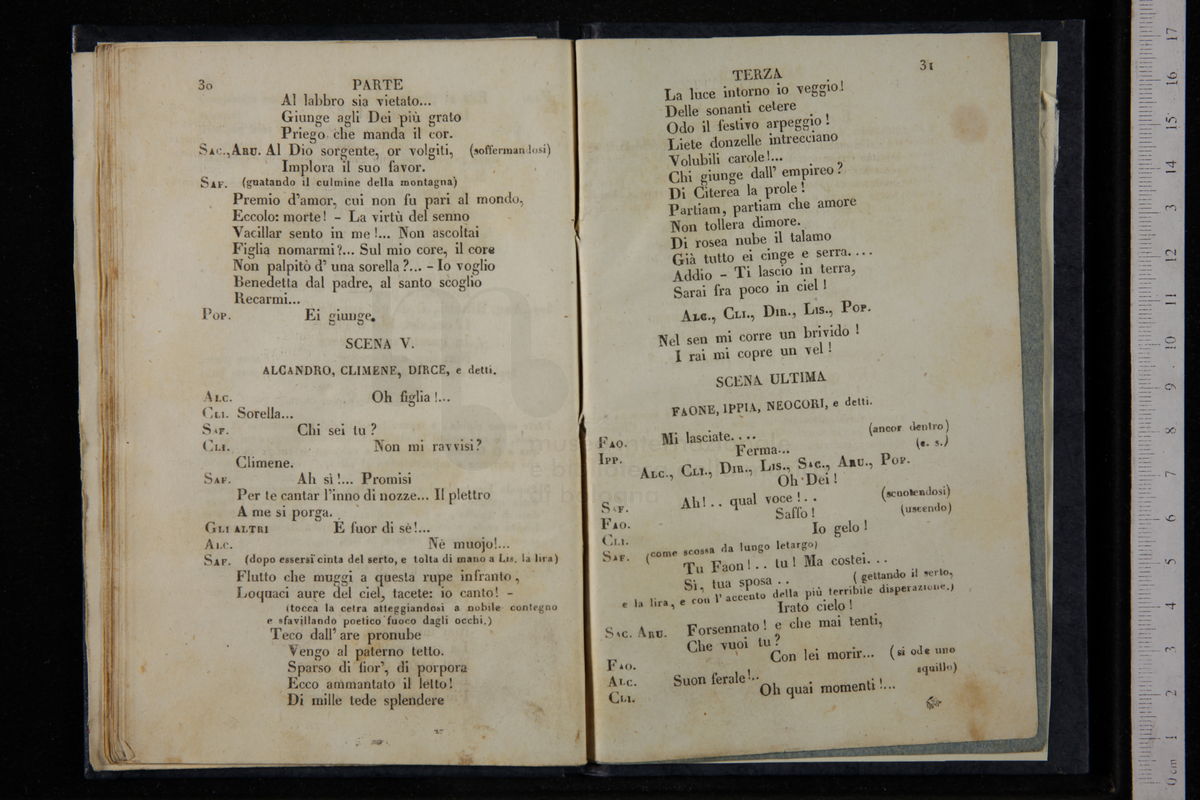 30 PARTE
Al labbro sia vietato...
Giunge agli Dei più grato
Priego che manda il cor.
SAC., ARU. Al Dio sorgente, or volgiti, (soffermandosi)
Implora il suo favor.
SAF. (guatando il culmine della montagna)
Premio d'amor, cui non fu pari al mondo,
Eccolo: morte! - La virtù del senno
Vacillar sento in me!... Non ascoltai
Figlia nomarmi?... Sul mio core, il core
Non palpitò d' una sorella?... - Io voglio
Benedetta dal padre, al santo scoglio
Recarmi...
POP. Ei giunge.
SCENA V.
ALCANDRO, CLIMENE, DIRCE, e detti.
ALC. Oh figlia!...
CLI. Sorella...
SAF. Chi sei tu?
CLI. Non mi ravvisi?
Climene.
SAF. Ah sì!... Promisi
Per te cantar l'inno di nozze... Il plettro
A me si porga.
GLI ALTRI È fuor di sè!...
ALC. Nè muojo!...
SAF. (dopo essersi cinta del serto, e tolta di mano a LIS. la lira)
Flutto che muggi a questa rupe infranto,
Loquaci aure del ciel, tacete: io canto! -
(tocca la cetra atteggiandosi a nobile contegno
e sfavillando poetico fuoco dagli occhi.)
Teco dall' are pronube
Vengo al paterno tetto.
Sparso di fior', di porpora
Ecco ammantato il letto!
Di mille tede splendere
TERZA 31
La luce intorno io veggio!
Delle sonanti cetere
Odo il festivo arpeggio!
Liete donzelle intrecciano
Volubili carole!...
Chi giunge dall' empireo?
Di Citerea la prole!
Partiam, partiam che amore
Non tollera dimore.
Di rosea nube il talamo
Già tutto ei cinge e serra....
Addio - Ti lascio in terra,
Sarai fra poco in ciel!
ALC., CLI., DIR., LIS., POP.
Nel sen mi corre un brivido!
I rai mi copre un vel!
SCENA ULTIMA
FAONE, IPPIA, NEOCORI, e detti.
FAO. Mi lasciate.... (ancor dentro)
IPP. Ferma... (c. s.)
ALC., CLI., DIR., LIS., SAC., ARU., POP.
Oh Dei!
SAF. Ah!.. qual voce!.. (scuotendosi)
FAO. Saffo! (uscendo)
CLI. Io gelo!
SAF. (come scossa da lungo letargo)
Tu Faon!.. tu! Ma costei...
Sì, tua sposa.. (gettando il serto,
e la lira, e con l' accento della più terribile disperazione.)
Irato cielo!
SAC. ARU. Forsennato! e che mai tenti,
Che vuoi tu?
FAO. Con lei morir... (si ode uno
ALC. Suon ferale!.. squillo)
CLI. Oh quai momenti!...
museo internazionale
e biblioteca
di bologna
0 cm 1 2 3 4 5 6 7 8 9 10 11 12 3 14 15 16 17